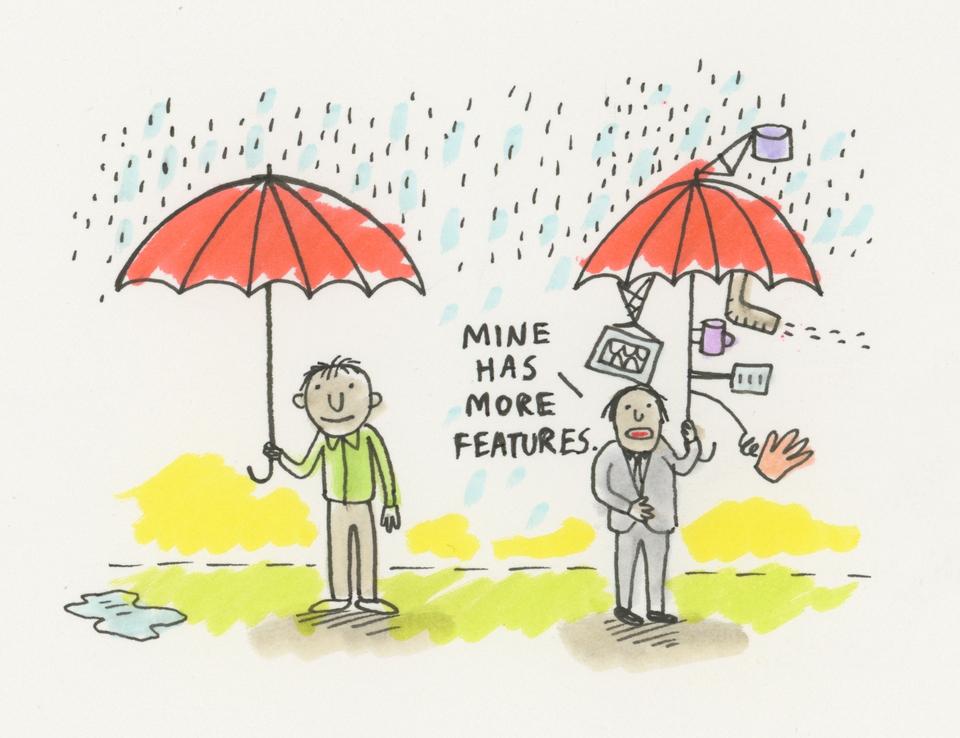 MINE
HAS
MORE
FEATURES.